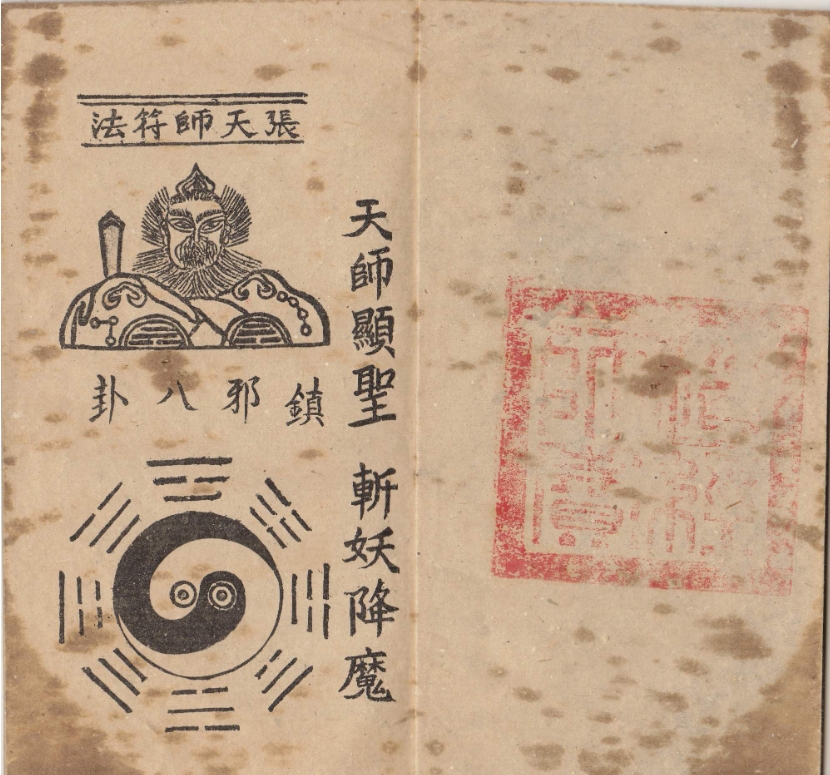 張天師符法
鎮邪八卦
天師顯聖 斬妖降魔